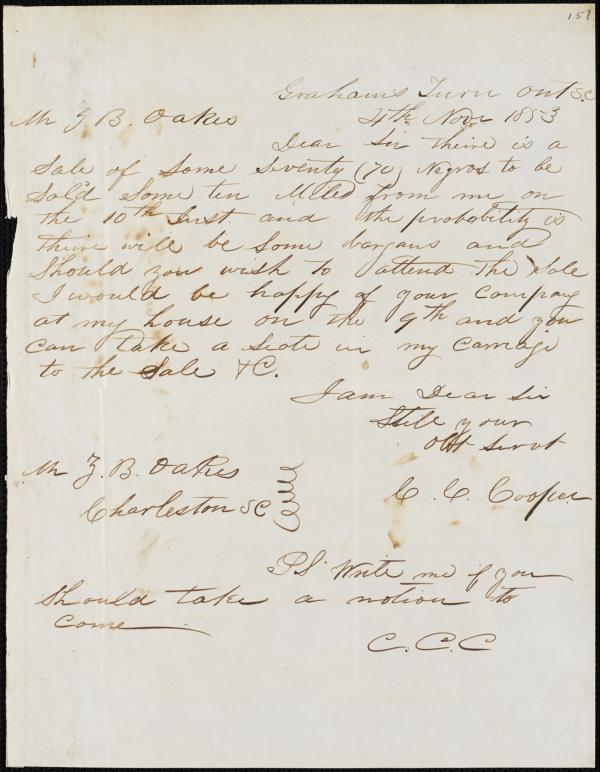 157
Grahams Turn out S.C
Mr Z. B. Oakes 4th Novr 1853
Dear Sir theire is a
Sale of Some Seventy (70) Negros to be
Sold Some ten Miles from me on
the 10th Inst and the probobility is
theire will be Some bargans and
Should you wish to attend the Sale
I would be happy of your Company
at my house on the 9th and you
can take a Seote in my Carriage
to the Sale &C.
I am Dear Sir
Still your
Obt Servt
Mr Z. B. Oakes
Charleston SC
C. C. Cooper
PS Write me if you
Should take a notion to
Come
C. C. C